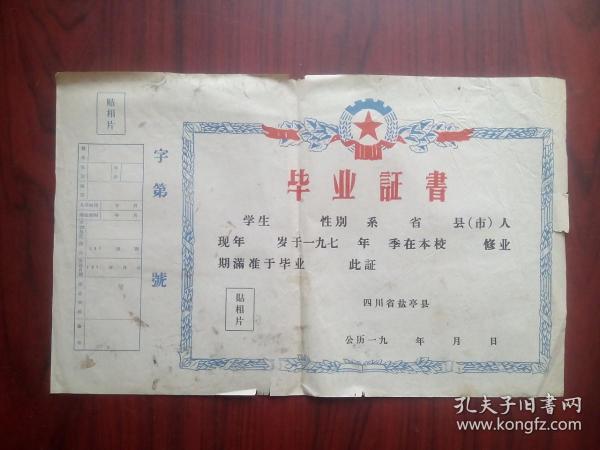 贴相片
字第 號
毕业証書
学生 性别 系 省 县(市)人
现年 岁于一九七 年 季在本校 修业
期满准于毕业 此証
贴相片
四川省盐亭县
公历一九 年 月 日
孔夫子旧书网
www.kongfz.com